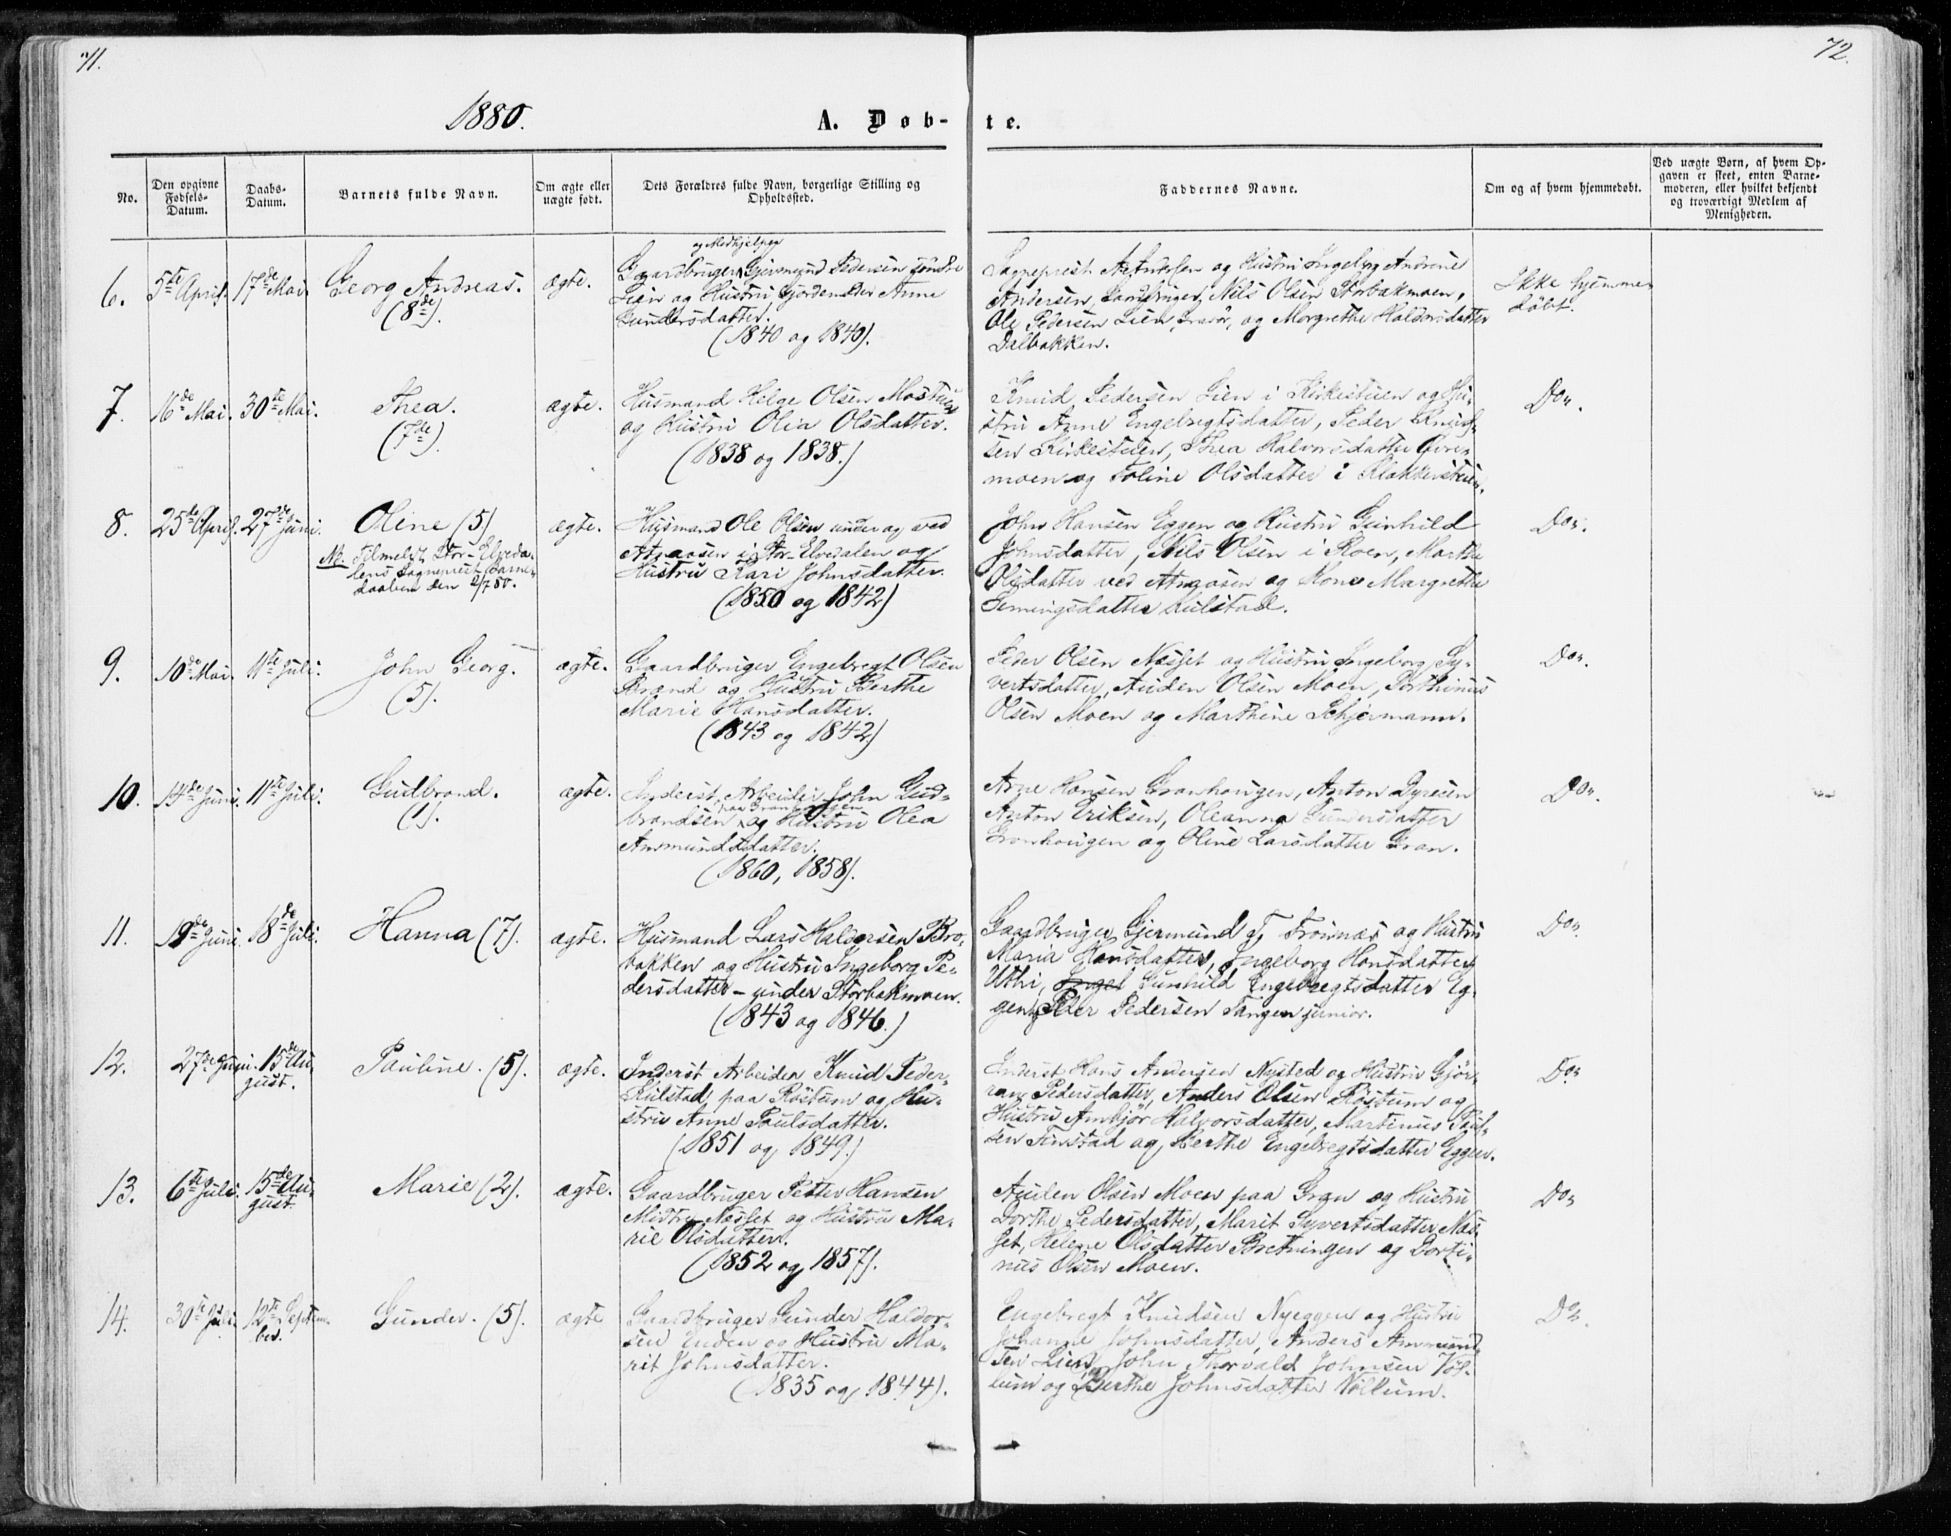 71.
72.
1880.
A. Døb-
te.
No.
Den opgivne
Fødsels-
Datum.
Daabs-
Datum.
Barnets fulde Navn.
Om ægte eller
uægte født.
Dets Forældres fulde Navn, borgerlige Stilling og
Opholdssted.
Faddernes Navne.
Om og af hvem hjemmedøbt.
Ved uægte Børn, af hvem Op-
gaven er skeet, enten Barne-
moderen, eller hvilket bekjendt
og troværdigt Medlem af
Menigheden.
6.
5te April.
17de Mai.
Georg Andreas.
(8de).
ægte.
og Medhjelper
Gaardbruger Gjermund Pedersen søndre
Lien og Hustru, Gjordemoder Anne
Gundersdatter.
(1840 og 1840).
Sogneprest Andersen og Hustru Ingeborg Andrine
Andersen, Gaardbruger Nils Olsen Storbakmoen,
Ole Pedersen Lien, og Margrethe Haldorsdatter
Dalbakken.
Ikke hjemme-
døbt.
7.
16de Mai.
30te Mai.
Thea.
(7de).
ægte.
Husmand Helge Olsen Mostuen
og Hustru Olia Olsdatter.
(1838 og 1838.)
Knud Pedersen Lien i Kirkestuen og Hu-
stru Anne Engebregtsdatter, Peder Knud-
sen Kirkestuen, Thea Halvorsdatter Øvre-
moen og Toline Olsdatter i Klokkerstuen.
Do.
8.
25de April.
27de Juni.
Oline (5)
NB. Tilmeldt Stor-Elveda-
lens Sogneprest Barne-
daaben den 2/7 80.
ægte.
Husmand Ole Olsen under og ved
Atnaosen i Stor-Elvedalen og
Hustru Kari Johnsdatter.
(1850 og 1842)
John Hansen Eggen og Hustru Gunhild
Johnsdatter, Nils Olsen i Moen, Marthe
Olsdatter ved Atnaosen og Kone Margrethe
Hemingsdatter Kulstad.
Do.
9.
10de Mai.
11te Juli.
John Georg.
(5).
ægte.
Gaardbruger Engebregt Olsen
Brænd og Hustru Berthe
Marie Hansdatter.
(1843 og 1842)
Peder Olsen Næsset og Hustru Ingeborg Sy-
vertsdatter, Auden Olsen Moen, Porthinus
Olsen Moen og Marthine Schjermann.
Do.
10.
14de Juni.
11te Juli.
Gudbrand.
(1).
ægte.
Inderst, Arbeider John Gud-
paa Granhougen
brandsen og Hustru Olea
Amundsdatter.
(1860, 1858).
Arne Hansen Granhougen, Anton Dyresen
Anton Eriksen, Oleanna Gundersdatter
Gronhougen og Oline Larsdatter Gran.
Do.
11.
19de Juni.
18de Juli.
Hanna (7).
ægte.
Husmand Lars Haldorsen Bro-
bakken og Hustru Ingeborg Pe-
dersdatter – under Storbakmoen.
(1843 og 1846.)
Gaardbruger Gjermund T. Trønnæs og Hustru
Maria Hansdatter, Ingeborg Hansdatter
Uthi, Gunhild Engebregtsdatter Eg-
gen, Peder Pedersen Tangen junior.
Do.
12.
27de Juni.
15de Au-
gust.
Pauline. (5).
ægte.
Inderst Arbeider Knud Peder-
Kulstad paa Røstum og Hu-
stru Anne Paulsdatter.
(1851 og 1849.)
Inderst Hans Andersen Nysted og Hustru Gjør-
ran Pedersdatter, Anders Olsen Røstum og
Hustru Ambjør Halvorsdatter, Martinus Paul-
sen Finstad og Berthe Engebregtsdatter Eggen.
Do
13.
6te Juli.
15de Au-
gust.
Marie (2).
ægte.
Gaardbruger Petter Hansen
Midtre Næsset og Hustru Ma-
rie Olsdatter.
(1852 og 1857).
Auden Olsen Moen paa Gran og Hustru
Dorthe Pedersdatter, Marit Syvertsdatter Næs-
set, Helene Olsdatter Bretningen og Porti-
nus Olsen Moen.
Do
14.
30te Juli.
12te Septem-
ber.
Gunder. (5).
ægte
Gaardbruger Gunder Haldor-
sen Enden og Hustru Ma-
rit Johnsdatter.
(1835 og 1844).
Engebregt Knudsen Nyeggen og Hustru
Johanne Johnsdatter, Anders Ammund-
sen Lien, John Thorvald Johnsen Vol-
lum og Berthe Johnsdatter Vollum.
Do.